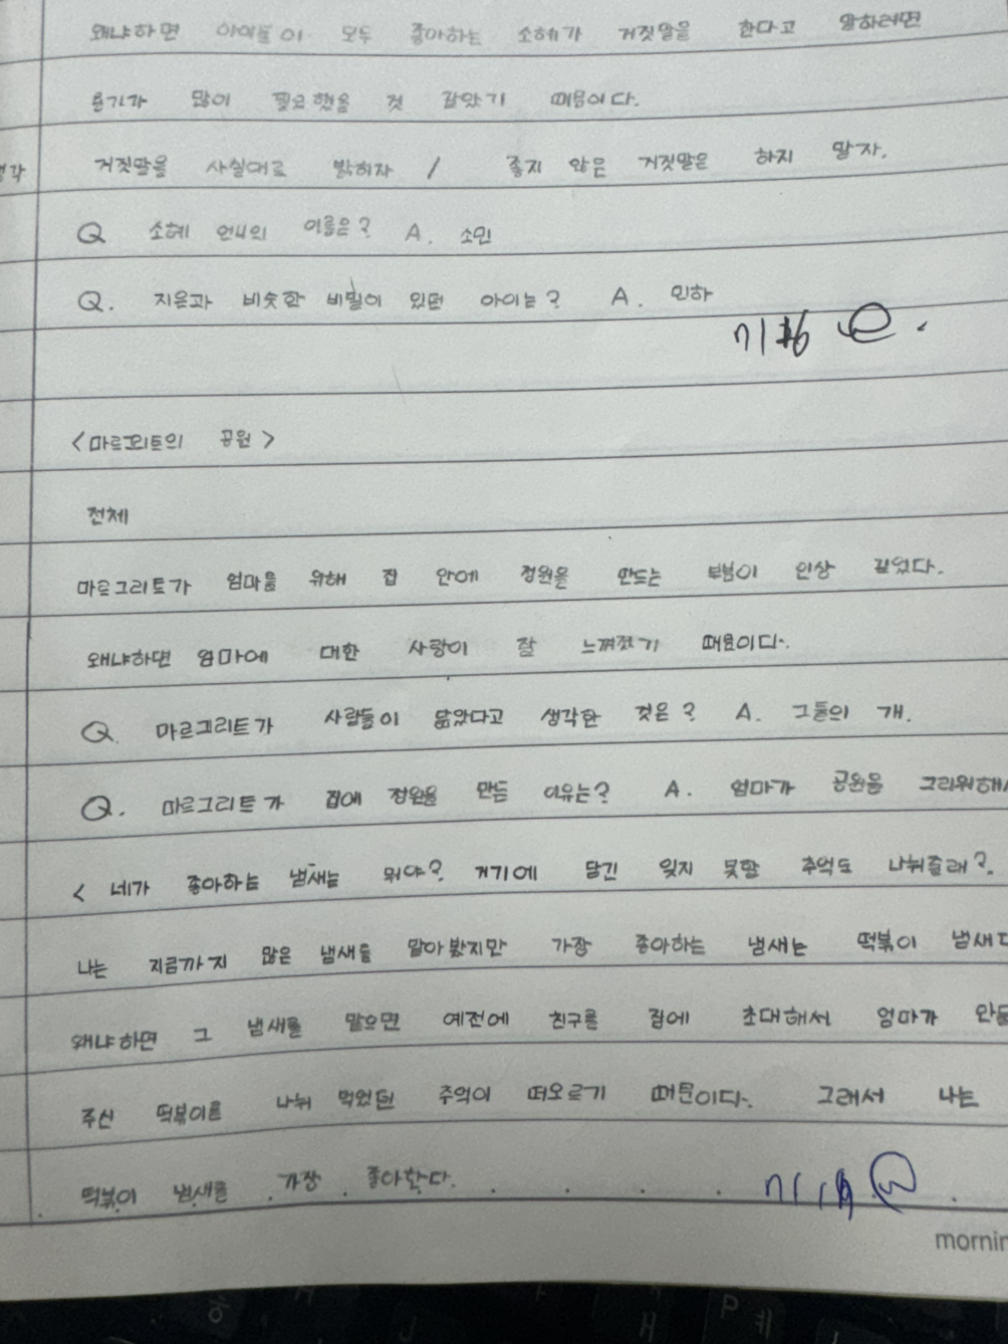 왜냐하면 아이들이 모두 좋아하는 소혜가 거짓말을 한다고 말하려면
용기가 많이 필요했을 것 같았기 때문이다.
생각 거짓말을 사실대로 밝히자 / 좋지 않은 거짓말은 하지 말자.
Q 소혜 언니의 이름은? A. 소민
Q. 지은과 비슷한 비밀이 있던 아이는? A. 민하
<마르그리트의 공원>
전체
마르그리트가 엄마를 위해 집 안에 정원을 만드는 부분이 인상 깊었다.
왜냐하면 엄마에 대한 사랑이 잘 느껴졌기 때문이다.
Q. 마르그리트가 사람들이 닮았다고 생각한 것은? A. 그들의 개.
Q. 마르그리트가 집에 정원을 만든 이유는? A. 엄마가 공원을 그리워해서
< 네가 좋아하는 냄새는 뭐야? 거기에 담긴 잊지 못할 추억도 나눠줄래?
나는 지금까지 많은 냄새를 맡아 봤지만 가장 좋아하는 냄새는 떡볶이 냄새다
왜냐하면 그 냄새를 맡으면 예전에 친구를 집에 초대해서 엄마가 만들
주신 떡볶이를 나눠 먹었던 추억이 떠오르기 때문이다. 그래서 나는
떡볶이 냄새를 가장 좋아한다.
mornin